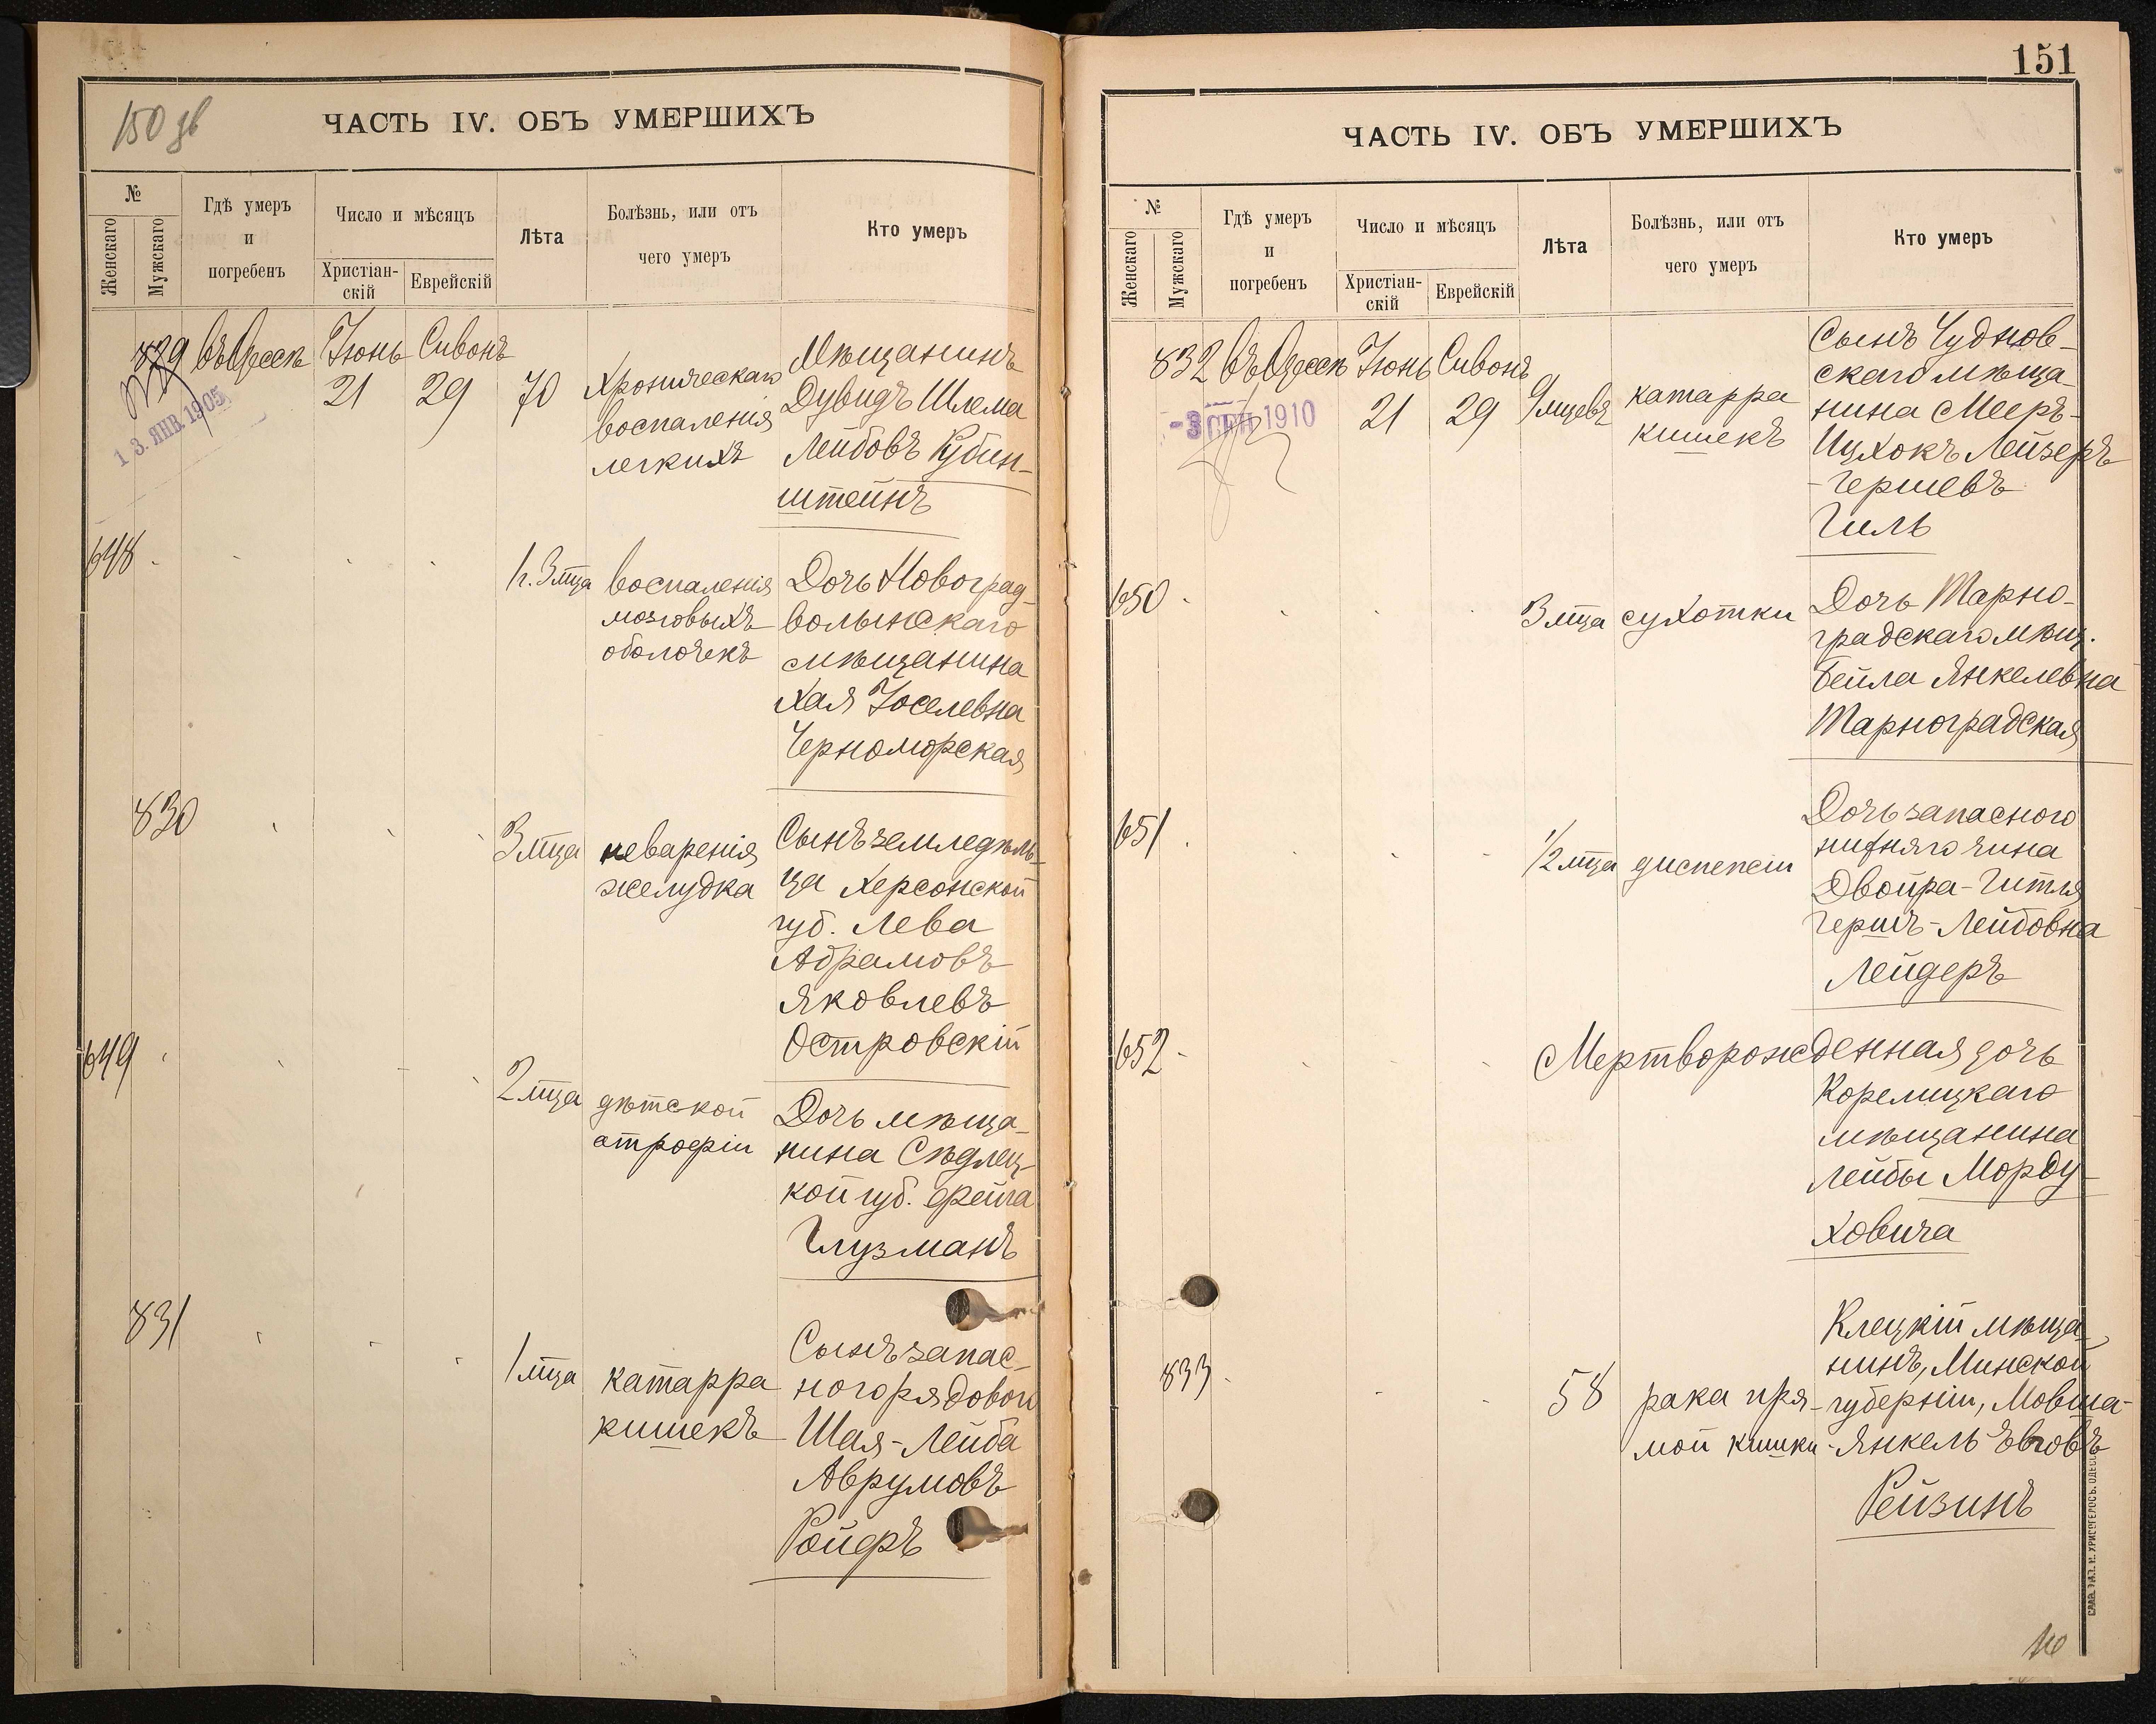 150 зв
ЧАСТЬ IV. ОБЪ УМЕРШИХЪ
№
Женскаго
Мужскаго
Гдѣ умеръ
и
погребенъ
Число и мѣсяцъ
Христіан-
скій
Еврейскій
Лѣта
Болѣзнь, или отъ
чего умеръ
Кто умеръ
829 въ Одессѣ Іюнь Сивонъ
21 29 70
13. ЯНВ 1905
Хроническаго
воспаленія
легкихъ
Мѣщанинъ
Дувидъ Шлема
Лейбовъ Рубин-
штейнъ
648
1 г. 3 мца
воспаленія
мозговыхъ
оболочекъ
Дочь Новоград-
волынскаго
мѣщанина
Хая Іоселевна
Черноморская
830
3 мца
неваренія
желудка
Сынъ земледѣль-
ца Херсонской
губ. Лева
Абрамовъ
Яковлевъ
Островскій
649
2 мца
дѣтской
атрофіи
Дочь мѣща-
нина Сѣдлец-
кой губ. Фейга
Глузманъ
831
1 мца
катарра
кишекъ
Сынъ запас-
ного рядовои
Шая-Лейба
Аврумовъ
Ройфъ
151
ЧАСТЬ IV. ОБЪ УМЕРШИХЪ
№
Женскаго
Мужскаго
Гдѣ умеръ
и
погребенъ
Число и мѣсяцъ
Христіан-
скій
Еврейскій
Лѣта
Болѣзнь, или отъ
чего умеръ
Кто умеръ
832 въ Одессѣ Іюнь Сивонъ
21 29 9 мцевъ
-3 СЕН 1910
катарра
кишекъ
Сынъ Чуднов-
скаго мѣща-
нина Мееръ-
Ицхокъ Лейзеръ
-Гершевъ
Гиль
650
3 мца
сухотки
Дочь Тарно-
градскаго мѣщ.
Бейла Янкелевна
Тарноградская
651
1/2 мца
диспепсіи
Дочь запасного
нижняго чина
Двойра-Гитля
Гершъ-Лейбовна
Лейдеръ
652
Мертворожденная дочь
Корелицкаго
мѣщанина
Лейбы Морду-
ховича
833
58
рака пря-
мой кишки
Клецкій мѣща-
нинъ, Минской
губерніи, Мовша-
-Янкель
Рейзинъ